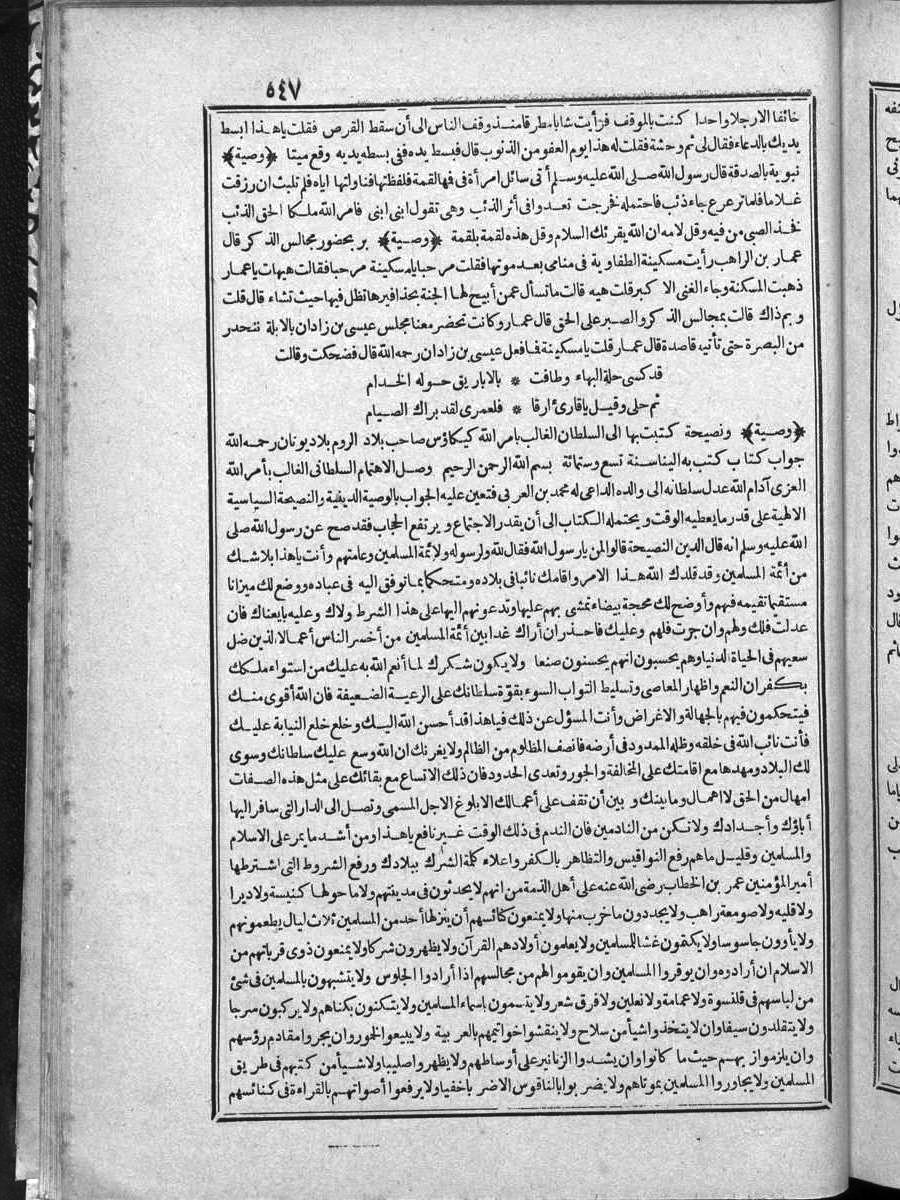 ٥٤٧
خائفا الارجلا واحدا كنت بالموقف فرأيت شابا مطرقا منذ وقف الناس الى أن سقط القرص فقلت ياهذا ابسط
يديك بالدعاء فقال لى ثم وحشة فقلت له هذا يوم العفو من الذنوب قال فبسط يده ففى بسطه يديه وقع ميتا ﴿وصية﴾
نبوية بالصدقة قال رسول الله صلى الله عليه وسلم أتى سائل امرأة فى فها لقمة فلفظتها فناولتها اياه فلم تلبث ان رزقت
غلاما فلما ترعرع جاء ذئب فاحتمله فخرجت تعدو فى أثر الذئب وهى تقول ابنى ابنى فامر الله ملكا الحق الذئب
فخذ الصبى من فيه وقل لامه ان الله يقرئك السلام وقل هذه لقمة بلقمة ﴿وصية﴾ بر بحضور مجالس الذكر قال
عمار بن الراهب رأيت مسكينة الطفاوية فى منامى بعد موتها فقلت مرحبا يا مسكينة مرحبا فقالت هيهات ياعمار
ذهبت المسكنة وجاء الغنى الاكبر قلت هيه قالت ما تسأل عمن أبيح لها الجنة بحذافيرها تظل فيها حيث تشاء قال قلت
وبم ذاك قالت بمجالس الذكر والصبر على الحق قال عمار وكانت تحضر معنا مجلس عيسى بن زادان بالابلة تنحدر
من البصرة حتى تأتيه قاصدة قال عمار قلت يا مسكينة فما فعل عيسى بن زادان رحمه الله قال فضحكت وقالت
قد كسى حلة البهاء وطافت * بالاباريق حوله الخدام
ثم حلى وقيل ياقارئ ارقا * فلعمرى لقد براك الصيام
﴿وصية﴾ ونصيحة كتبت بها الى السلطان الغالب بامر الله كيكاوس صاحب بلاد الروم بلاد يونان رحمه الله
جواب كتاب كتب به الينا سنة تسع وستمائة بسم الله الرحمن الرحيم وصل الاهتمام السلطانى الغالب بأمر الله
العزى أدام الله عدل سلطانه الى والده الداعى له محمد بن العربى فتعين عليه الجواب بالوصية الدينية والنصيحة السياسية
الالهية على قدر ما يعطيه الوقت ويحتمله الكتاب الى أن يقدر الاجتماع ويرتفع الحجاب فقد صح عن رسول الله صلى
الله عليه وسلم انه قال الدين النصيحة قالوا لمن يارسول الله فقال لله ولرسوله ولائمة المسلمين وعامتهم وأنت ياهذا بلا شك
من أئمة المسلمين وقد قلدك الله هذا الامر واقامك نائبا فى بلاده ومتحكما بما توفق اليه فى عباده ووضع لك ميزانا
مستقيما تقيمه فيهم وأوضح لك محجة بيضاء تمشى بهم عليها وتدعوهم اليها على هذا الشرط ولاك وعليه بايعناك فان
عدلت فلك ولهم وان جرت فلهم وعليك فاحذر ان أراك غدا بين أئمة المسلمين من أخسر الناس أعمالا الذين ضل
سعيهم فى الحياة الدنيا وهم يحسبون انهم يحسنون صنعا ولا يكون شكرك لما أنعم الله به عليك من استواء ملكك
بكفران النعم واظهار المعاصى وتسليط النواب السوء بقوة سلطانك على الرعية الضعيفة فان الله أقوى منك
فيتحكمون فيهم بالجهالة والاغراض وأنت المسؤل عن ذلك فياهذا قد أحسن الله اليك وخلع خلع النيابة عليك
فأنت نائب الله فى خلقه وظله الممدود فى أرضه فانصف المظلوم من الظالم ولا يغرنك ان الله وسع عليك سلطانك وسوى
لك البلاد ومهدها مع اقامتك على المخالفة والجور وتعدى الحدود فان ذلك الاتساع مع بقائك على مثل هذه الصفات
امهال من الحق لا اهمال وما بينك وبين أن تقف على أعمالك الا بلوغ الاجل المسمى وتصل الى الدار التى سافر اليها
أباؤك وأجدادك ولا تكن من النادمين فان الندم فى ذلك الوقت غير نافع ياهذا ومن أشد ما يمر على الاسلام
والمسلمين وقليل ماهم رفع النواقيس والتظاهر بالكفر واعلاء كلمة الشرك ببلادك ورفع الشروط التى اشترطها
أمير المؤمنين عمر بن الخطاب رضى الله عنه على أهل الذمة من انهم لا يحدثون فى مدينتهم ولا ما حولها كنيسة ولا ديرا
ولا قلية ولا صومعة راهب ولا يجددون ما خرب منها ولا يمنعون كنائسهم أن ينزلها أحد من المسلمين ثلاث ليال يطعمونهم
ولا يأوون جاسوسا ولا يكتمون غشا للمسلمين ولا يعلمون أولادهم القرآن ولا يظهرون شركا ولا يمنعون ذوى قرباتهم من
الاسلام ان أرادوه وان يوقروا المسلمين وان يقوموا لهم من مجالسهم اذا أرادوا الجلوس ولا يتشبهون بالمسلمين فى شئ
من لباسهم فى قلنسوة ولا عمامة ولا نعلين ولا فرق شعر ولا يتسمون باسماء المسلمين ولا يتكنون بكناهم ولا يركبون سرجا
ولا يتقلدون سيفا وان لا يتخذوا شيأ من سلاح ولا ينقشوا خواتيمهم بالعربية ولا يبيعوا الخمور وان يجروا مقادم رؤسهم
وان يلزموا زيهم حيث ما كانوا وان يشدوا الزنانير على أوساطهم ولا يظهروا صليبا ولا شيأ من كتبهم فى طريق
المسلمين ولا يجاوروا المسلمين بموتاهم ولا يضربوا بالناقوس الا ضربا خفيا ولا يرفعوا أصواتهم بالقراءة فى كنائسهم